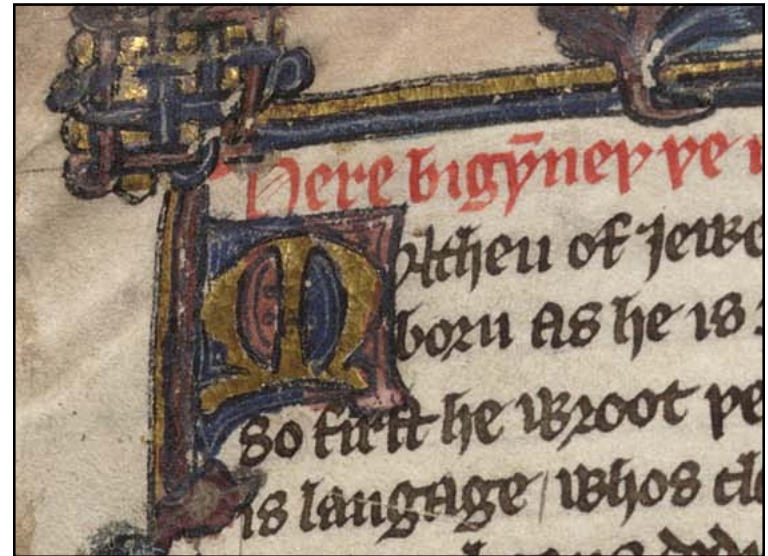 Here bigȳneþ þe
Matheu of Jewe
born as he is
so first he wroot þe
is langage / whos cl